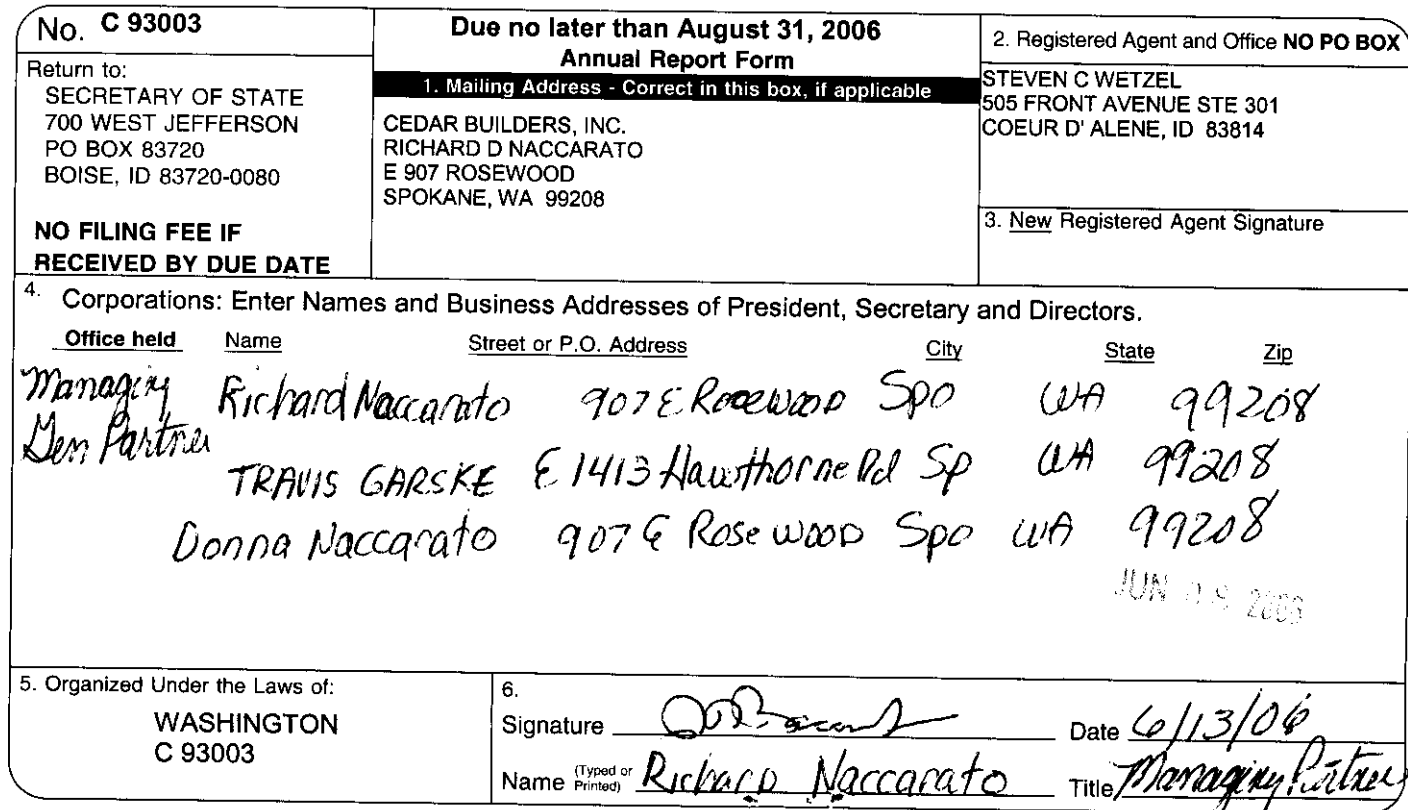 No. C 93003
Return to:
SECRETARY OF STATE
700 WEST JEFFERSON
PO BOX 83720
BOISE, ID 83720-0080
NO FILING FEE IF
RECEIVED BY DUE DATE
Due no later than August 31, 2006
Annual Report Form
1. Mailing Address - Correct in this box, if applicable
CEDAR BUILDERS, INC.
RICHARD D NACCARATO
E 907 ROSEWOOD
SPOKANE, WA 99208
2. Registered Agent and Office NO PO BOX
STEVEN C WETZEL
505 FRONT AVENUE STE 301
COEUR D' ALENE, ID 83814
3. New Registered Agent Signature
4. Corporations: Enter Names and Business Addresses of President, Secretary and Directors.
Office held Name Street or P.O. Address City State Zip
Managing Richard Naccarato 907 E Rosewood Spo WA 99208
Gen Partner
TRAVIS GARSKE E 1413 Hawthorne Rd Sp WA 99208
Donna Naccarato 907 E Rosewood Spo WA 99208
JUN 2006
5. Organized Under the Laws of:
WASHINGTON
C 93003
6.
Signature Date 6/13/06
Name (Typed or Printed) Richard Naccarato Title Managing Partner